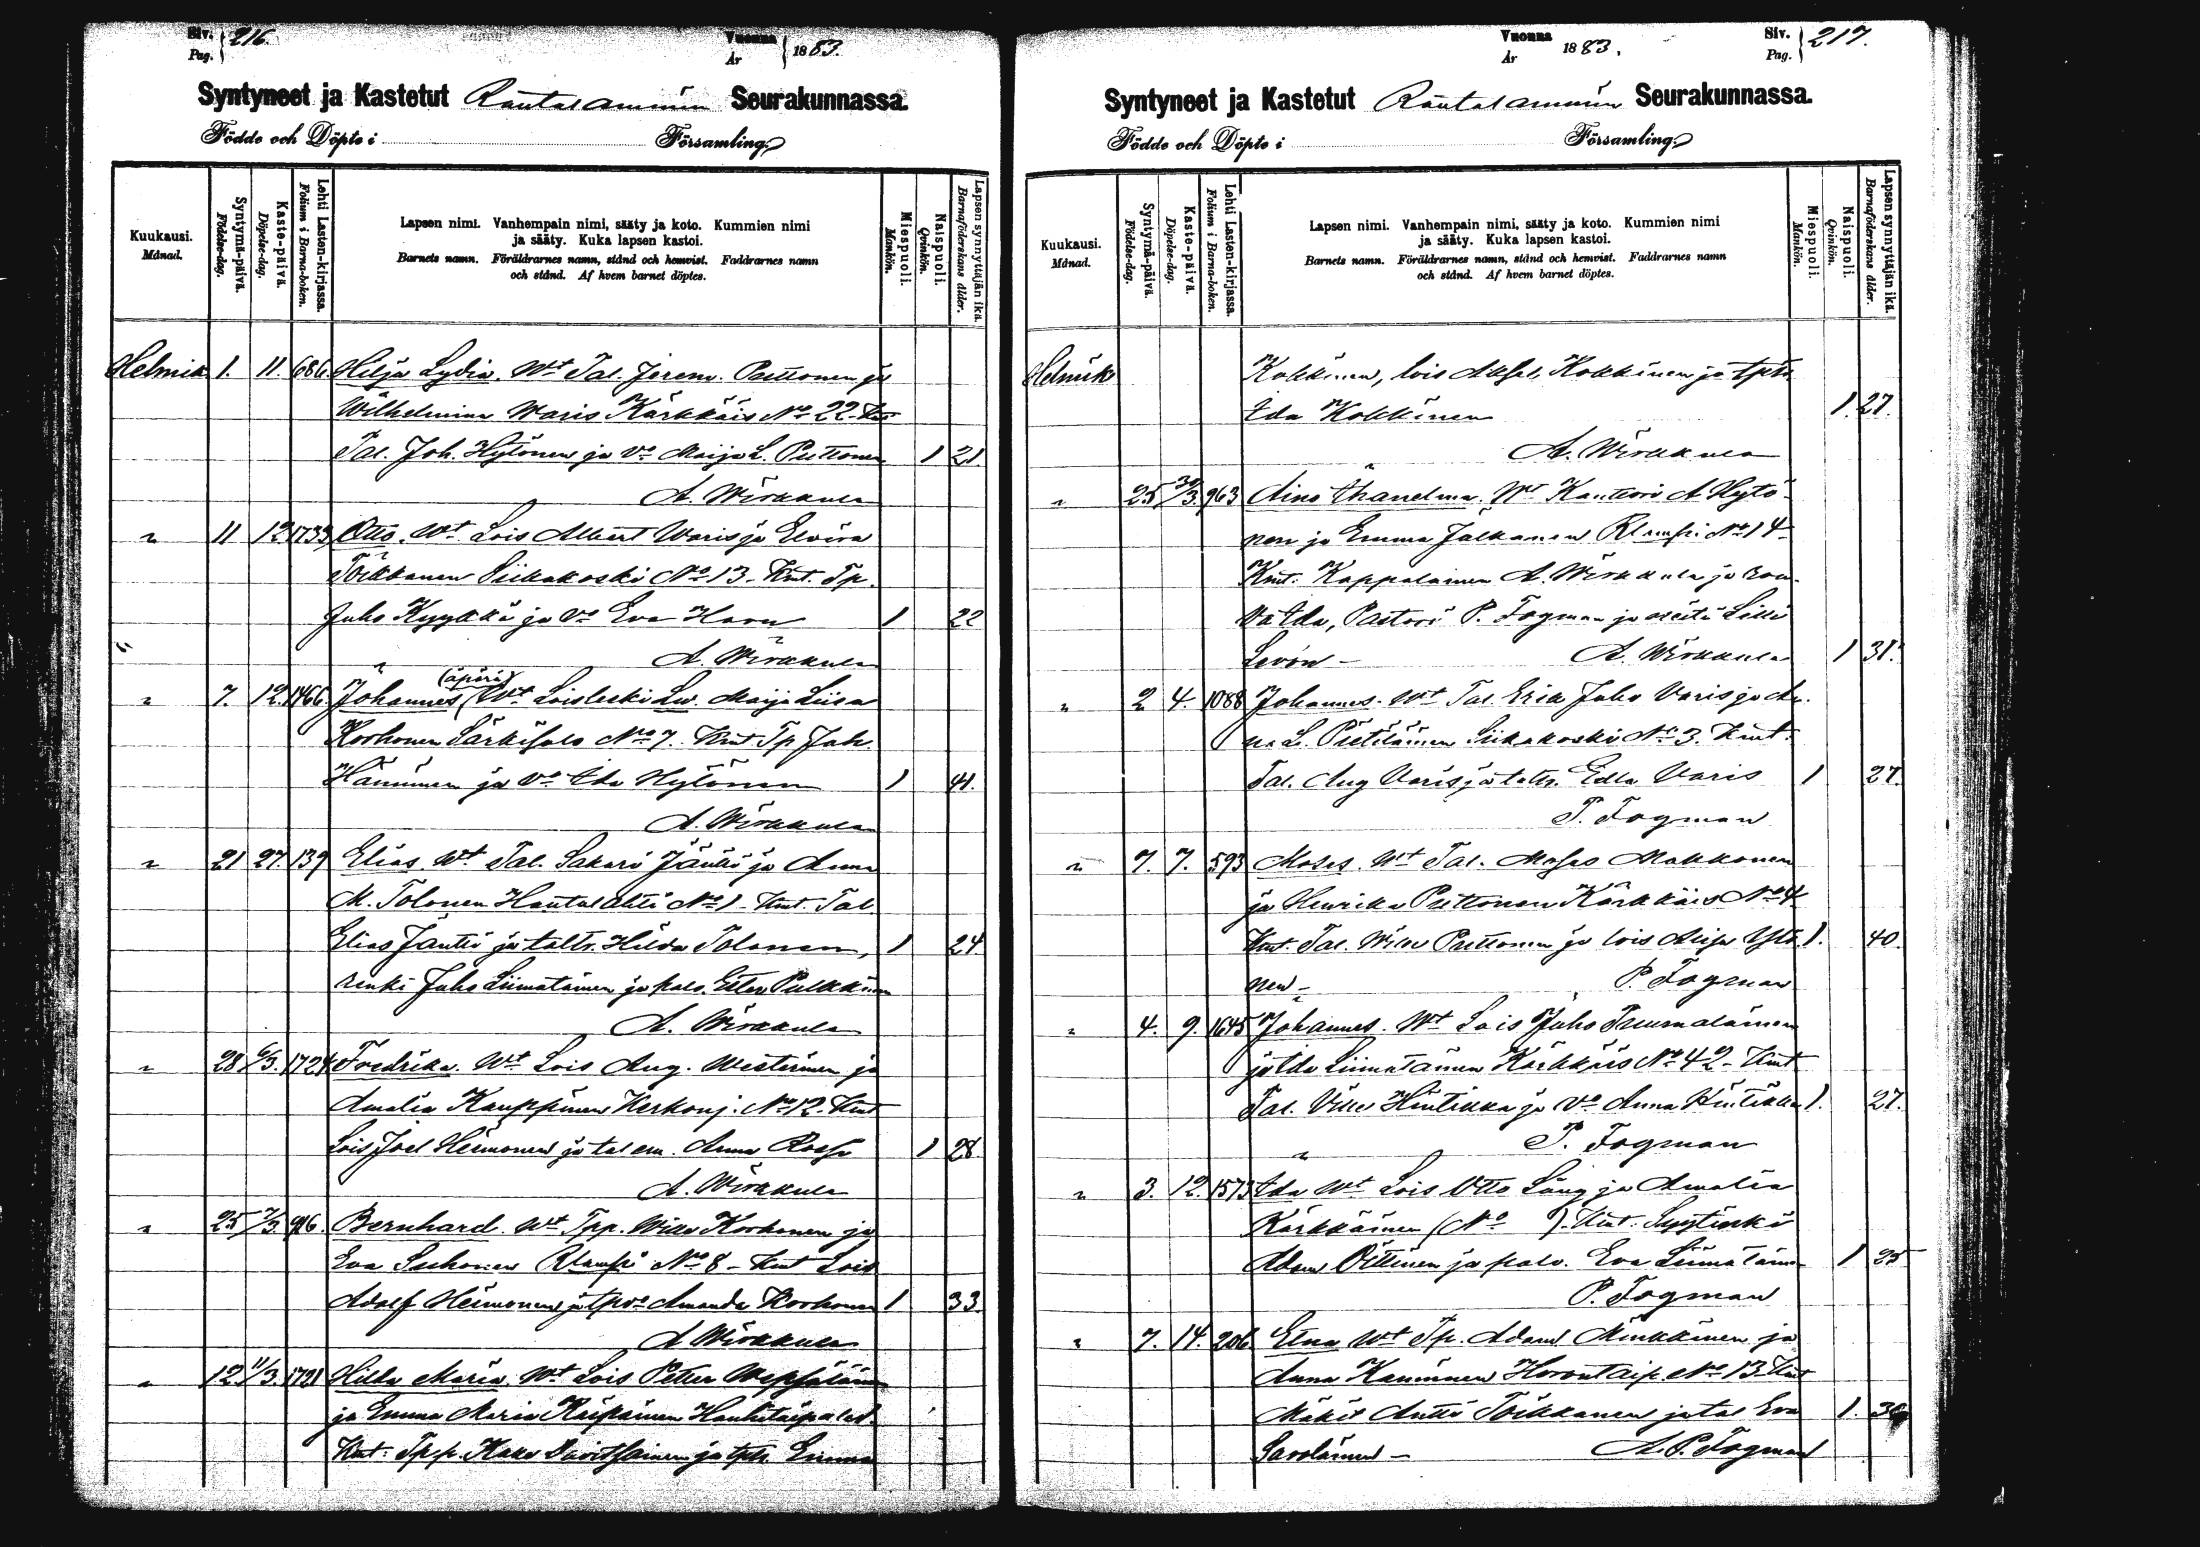 Siv. 216.
Pag.
Vuonna 1883.
År
Syntyneet ja Kastetut Rautalammin Seurakunnassa.
Födde och Döpte i Församling
Kuukausi.
Månad.
Syntymä-päivä.
Födelse-dag.
Kaste-päivä.
Döpelse-dag.
Lehti Lasten-kirjassa.
Folium i Barna-boken.
Lapsen nimi. Vanhempain nimi, sääty ja koto. Kummien nimi
ja sääty. Kuka lapsen kastoi.
Barnets namn. Föräldrarnes namn, stånd och hemvist. Faddrarnes namn
och stånd. Af hvem barnet döptes.
Miespuoli.
Mankön.
Naispuoli.
Qvinkön.
Lapsen synnyttäjän ikä.
Barnaföderskans ålder.
Helmik. 1. 11. 686. Hilja Lydia. Wt Tal. Jerem. Puttonen ja
Wilhelmina Waris Kärkkäis No 22
Tal. Joh. Hytönen ja Vo Maija L. Puttonen 1 21
A. Wirkkula
" 11 12 1733 Otto. Wt Lois Albert Waris ja Elvira
Toikkanen Siikakoski No 13. Kmt. Tp.
Juho Kyykkä ja Vo Eva 1 22
A. Wirkkula
" 7. 12. 1466. Johannes (äpärä) Wt Loisleski Maija Liisa
Korhonen Särkisalo No 7. Kmt Tp Joh.
Hänninen ja Vo Ida Hytönen 1 41.
A. Wirkkula
" 21 27. 139 Elias. Wt Tal. Sakari Jäntti ja Anna
M. Tolonen No 1. Kmt. Tal.
Elias Jäntti ja taltr. Hilda Tolonen, 1 24.
renki Juho Liimatainen ja palv. Pulkkinen
A. Wirkkula
" 28 6/3. 1724 Fredrika. Wt Lois Aug. Westerinen ja
Amalia Kauppinen Kerkonj. No 12. Kmt
Lois Joel Heimonen ja tal em. Anna 1 28
A. Wirkkula
" 25 7/3 916. Bernhard. Wt Tpp. Wille Korhonen ja
Eva No 8 - Kmt Lois
Adolf Heimonen ja Amanda Korhonen 1 33.
A Wirkkula
" 12 11/3. 1721 Hilda Maria. Wt Lois Petter
ja Emma Maria
Kmt: Tpp. ja tptr. Emma
Vuonna 1883.
År
Siv. 217.
Pag.
Syntyneet ja Kastetut Rautalammin Seurakunnassa.
Födde och Döpte i Församling
Kuukausi.
Månad.
Syntymä-päivä.
Födelse-dag.
Kaste-päivä.
Döpelse-dag.
Lehti Lasten-kirjassa.
Folium i Barna-boken.
Lapsen nimi. Vanhempain nimi, sääty ja koto. Kummien nimi
ja sääty. Kuka lapsen kastoi.
Barnets namn. Föräldrarnes namn, stånd och hemvist. Faddrarnes namn
och stånd. Af hvem barnet döptes.
Miespuoli.
Mankön.
Naispuoli.
Qvinkön.
Lapsen synnyttäjän ikä.
Barnaföderskans ålder.
Helmik Kokkinen, lois Kokkinen ja tptr.
Ida Kokkinen 1. 27.
A. Wirkkula
" 25 30/3 963 Aino Wt Kanttori A Hytö-
nen ja Emma Jalkanen No 14
Kmt: Kappalainen A. Wirkkula ja rou-
va Ida, Pastori P. Fogman ja neiti Lilli
Levón - A. Wirkkula 1 31.
" 2 4. 1088 Johannes. Wt Tal. Erik Juho Varis ja An-
na L. Pietiläinen Siikakoski No 3. Kmt:
Tal. Aug Varis ja taltr. Edla Varis 1 27.
P. Fogman
" 7. 7. 593 Moses. Wt Tal. Moses Makkonen
ja Henrika Puttonen Kärkkäis No 4
Kmt. Tal. Wille Puttonen ja lois 1. 40.
nen - P. Fogman
" 4. 9. 1645 Johannes. Wt Lois Juho
ja Ida Liimatainen Kärkkäis No 42 - Kmt
Tal. Ville Hintikka ja Vo Anna Hintikka 1. 27.
P. Fogman
" 3. 12. 1573 Ida Wt Lois Otto Lång ja Amalia
Kärkkäinen (No ). Kmt: Syytinki
Adam Pittinen ja palv. Eva 1 25
P. Fogman
" 7. 14. 206. Wt Tp. Adam Minkkinen ja
Anna Kaminen No 13. Kmt
Mäkit Antti Toikkanen ja tal Eva 1. 30
Savolainen - A. P. Fogman